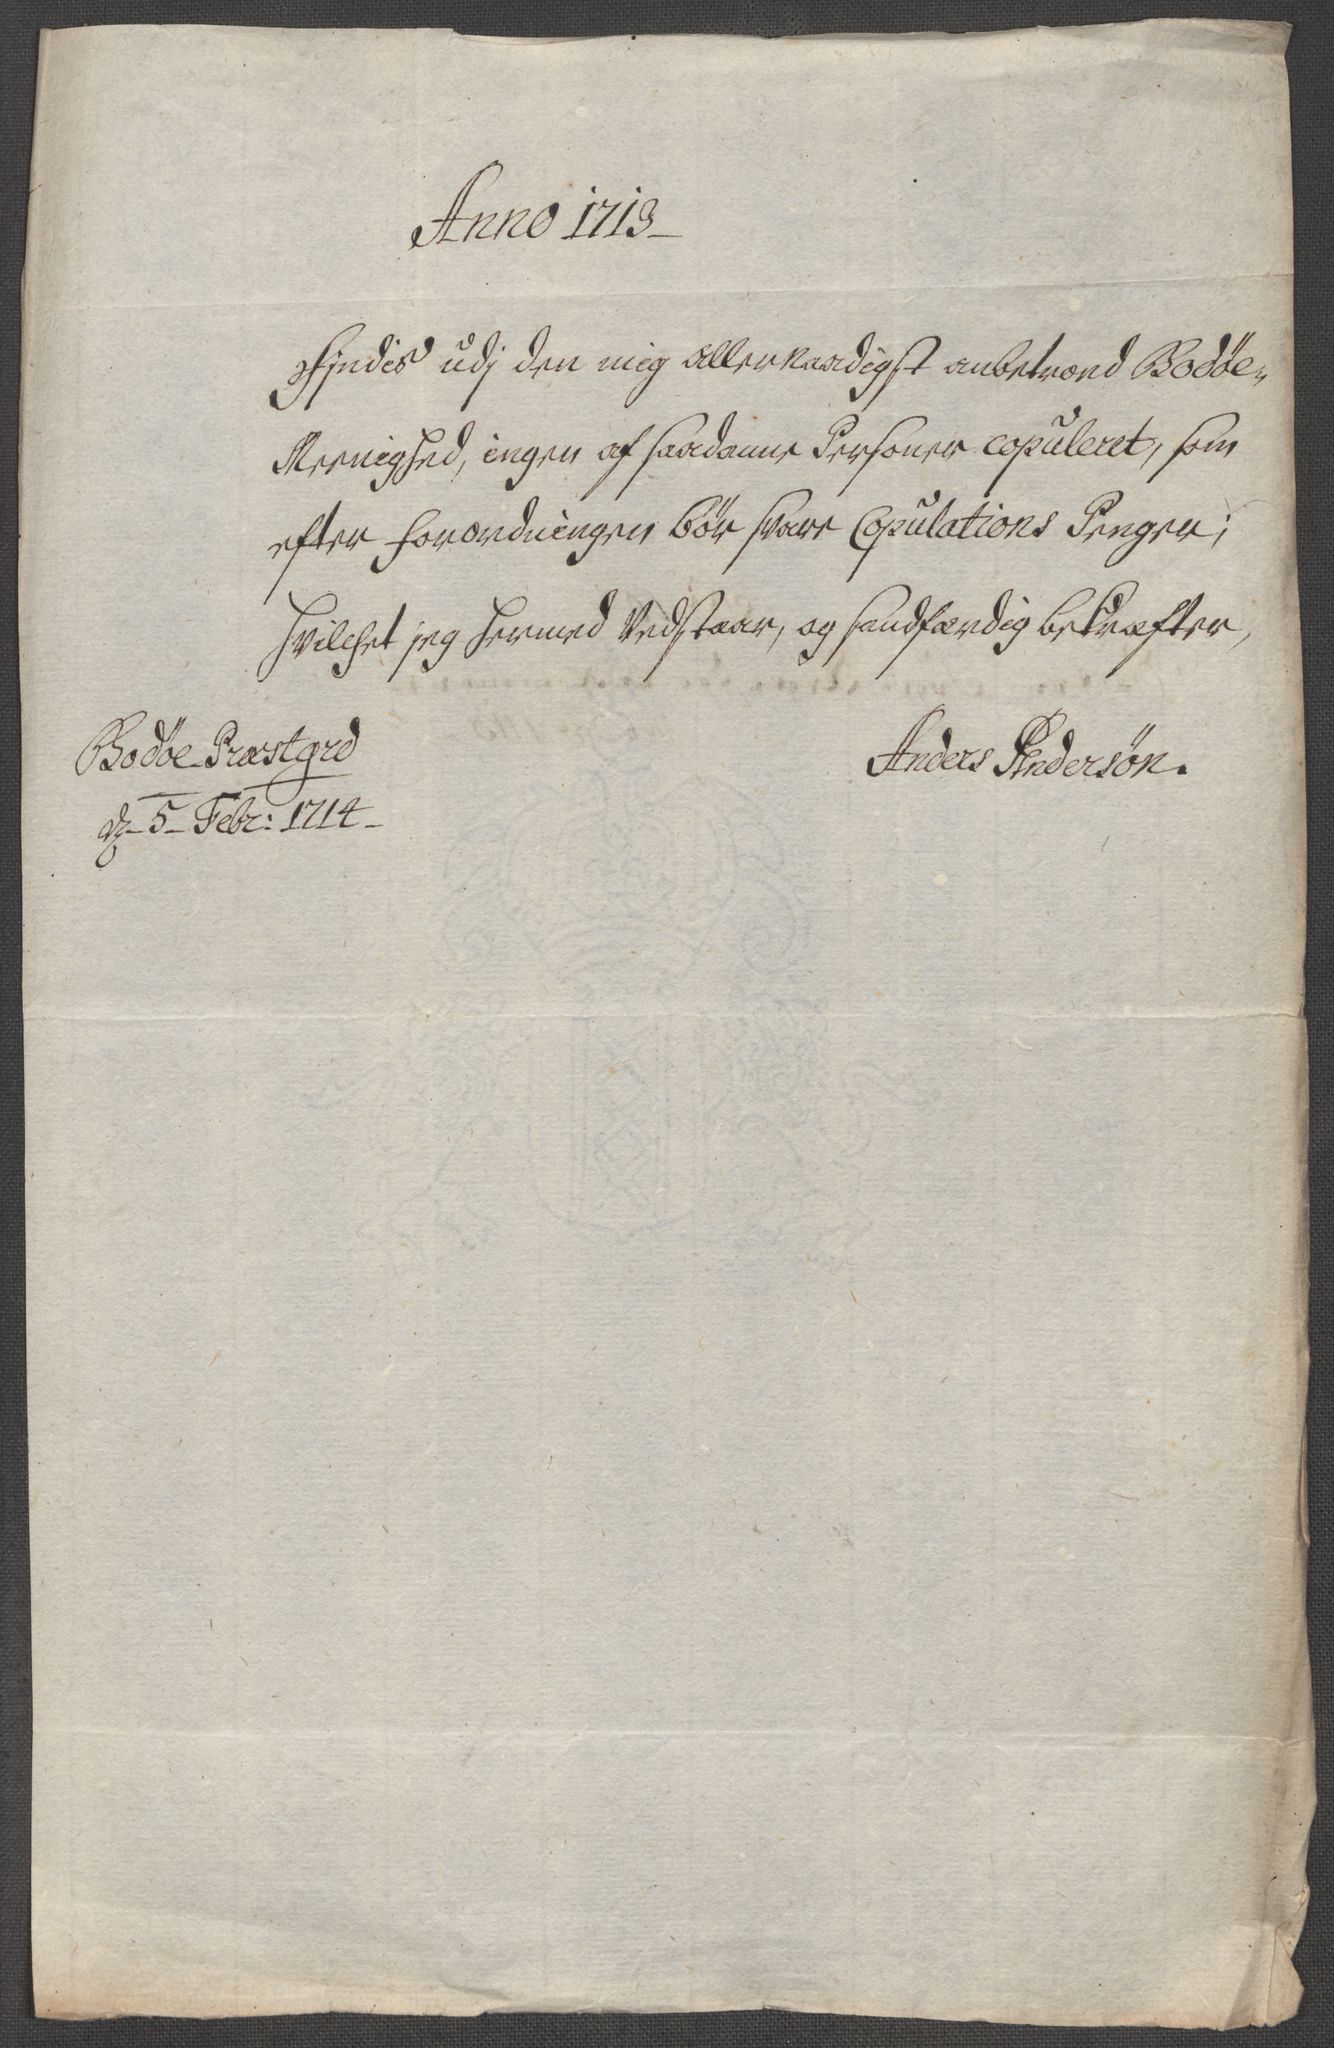 Anno 1713
Findis udj den mig allernaadigst anbetroed Bodøe-
Meenighed, ingen af saadanne Personer copuleret, som
efter forordningen bør svare Copulations Penger;
Hvilchet jeg hermed Vedstaar, og sandfærdig bekræfter,
Bodøe Præstgrd
Anders Andersøn.
d 5 Febr: 1714